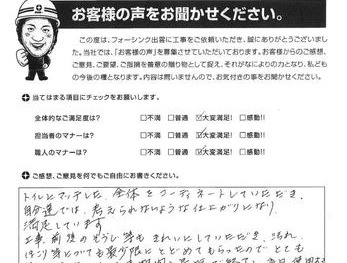 お客様の声をお聞かせください。
この度は、フォーシンク出雲に工事をご依頼いただき、誠にありがとうございまし
た。当社では、「お客様の声」を募集させていただいております。お客様からのご感想、
ご意見、ご要望、ご指摘を普意の贈り物として捉え、それがなによりの力となり、私ども
の今後の糧となります。内容は問いませんので、お気付きの事をお聞かせください。
当てはまる項目にチェックをお願いします。
全体的なご満足度は? □不満 □普通 ☑大変満足! □感動!!
担当者のマナーは? □不満 □普通 ☑大変満足! □感動!!
職人のマナーは? □不満 □普通 ☑大変満足! □感動!!
ご感想、ご意見を何でもご自由にお書きください。
トイレにマッチした、全体をコーディネートしていただき、
自分達では、考えられないような仕上がりになり、
満足しています
工事前後のそうじ等もきれいにしていただき、汚れ、
ほこり等についても最少限にとどめてもらったのでとても